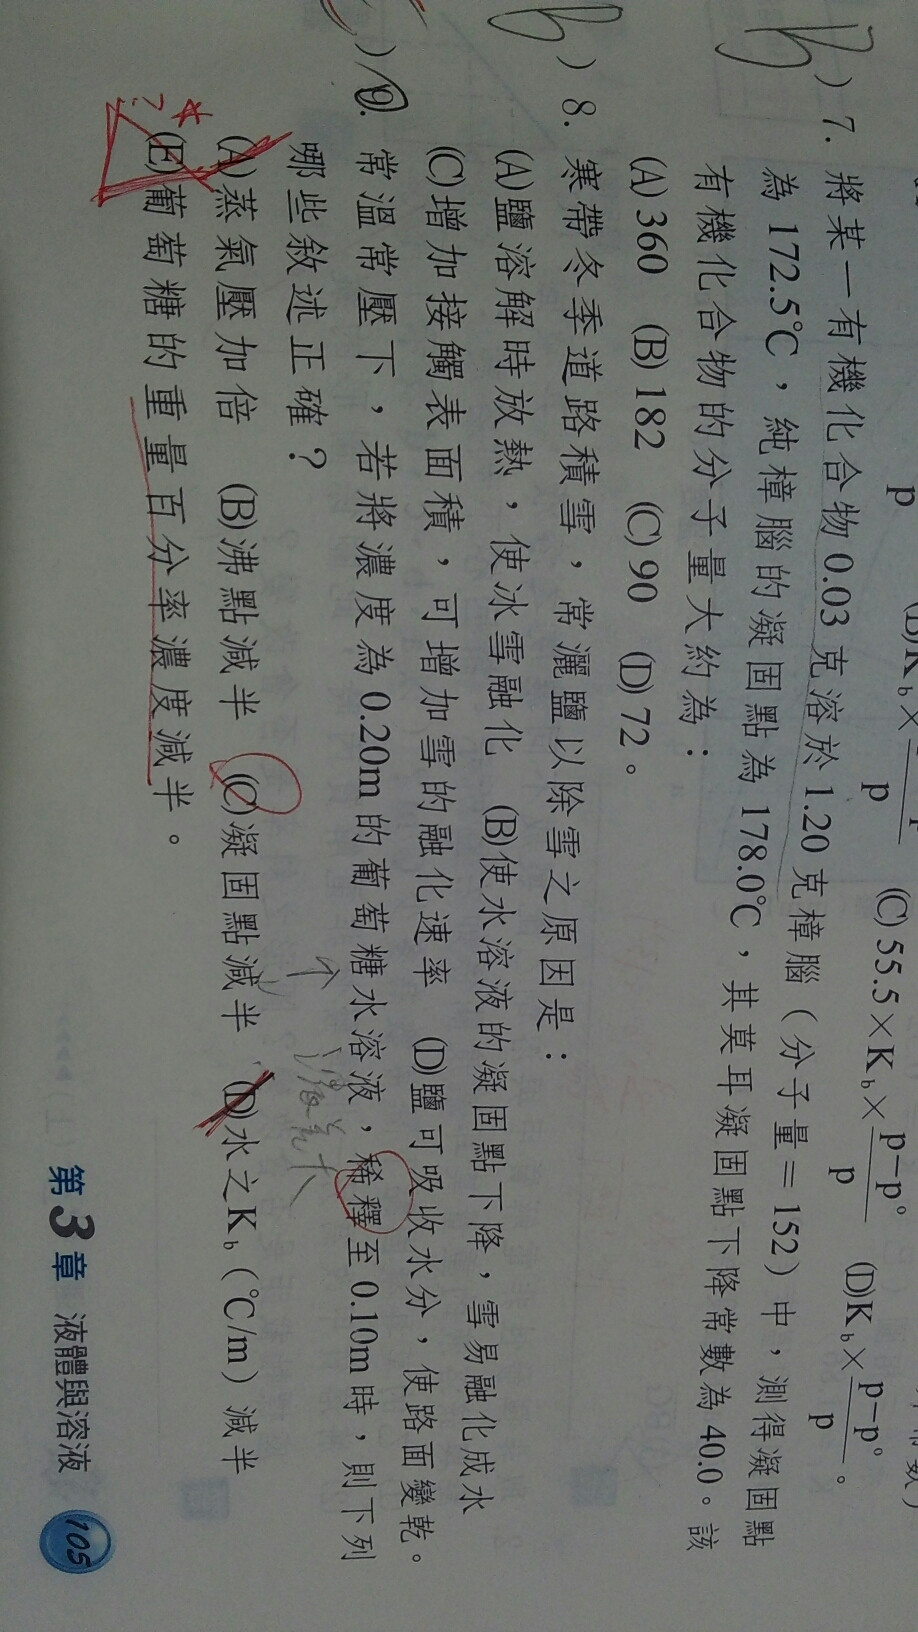 p
(D)K b ×
p
(C) 55.5 × K b × p−p° p
(D)K b × p−p° p 。
B ) 7. 將某一有機化合物 0.03 克溶於 1.20 克樟腦(分子量=152)中,測得凝固點
為 172.5℃,純樟腦的凝固點為 178.0℃,其莫耳凝固點下降常數為 40.0。該
有機化合物的分子量大約為:
(A) 360 (B) 182 (C) 90 (D) 72。
B ) 8. 寒帶冬季道路積雪,常灑鹽以除雪之原因是:
(A)鹽溶解時放熱,使冰雪融化 (B)使水溶液的凝固點下降,雪易融化成水
(C)增加接觸表面積,可增加雪的融化速率 (D)鹽可吸收水分,使路面變乾。
) 9. 常溫常壓下,若將濃度為 0.20m 的葡萄糖水溶液,稀釋至 0.10m 時,則下列
哪些敘述正確?
(A)蒸氣壓加倍 (B)沸點減半 (C)凝固點減半 (D)水之 K b (℃/m)減半
(E)葡萄糖的重量百分率濃度減半。
?
第3章 液體與溶液 105